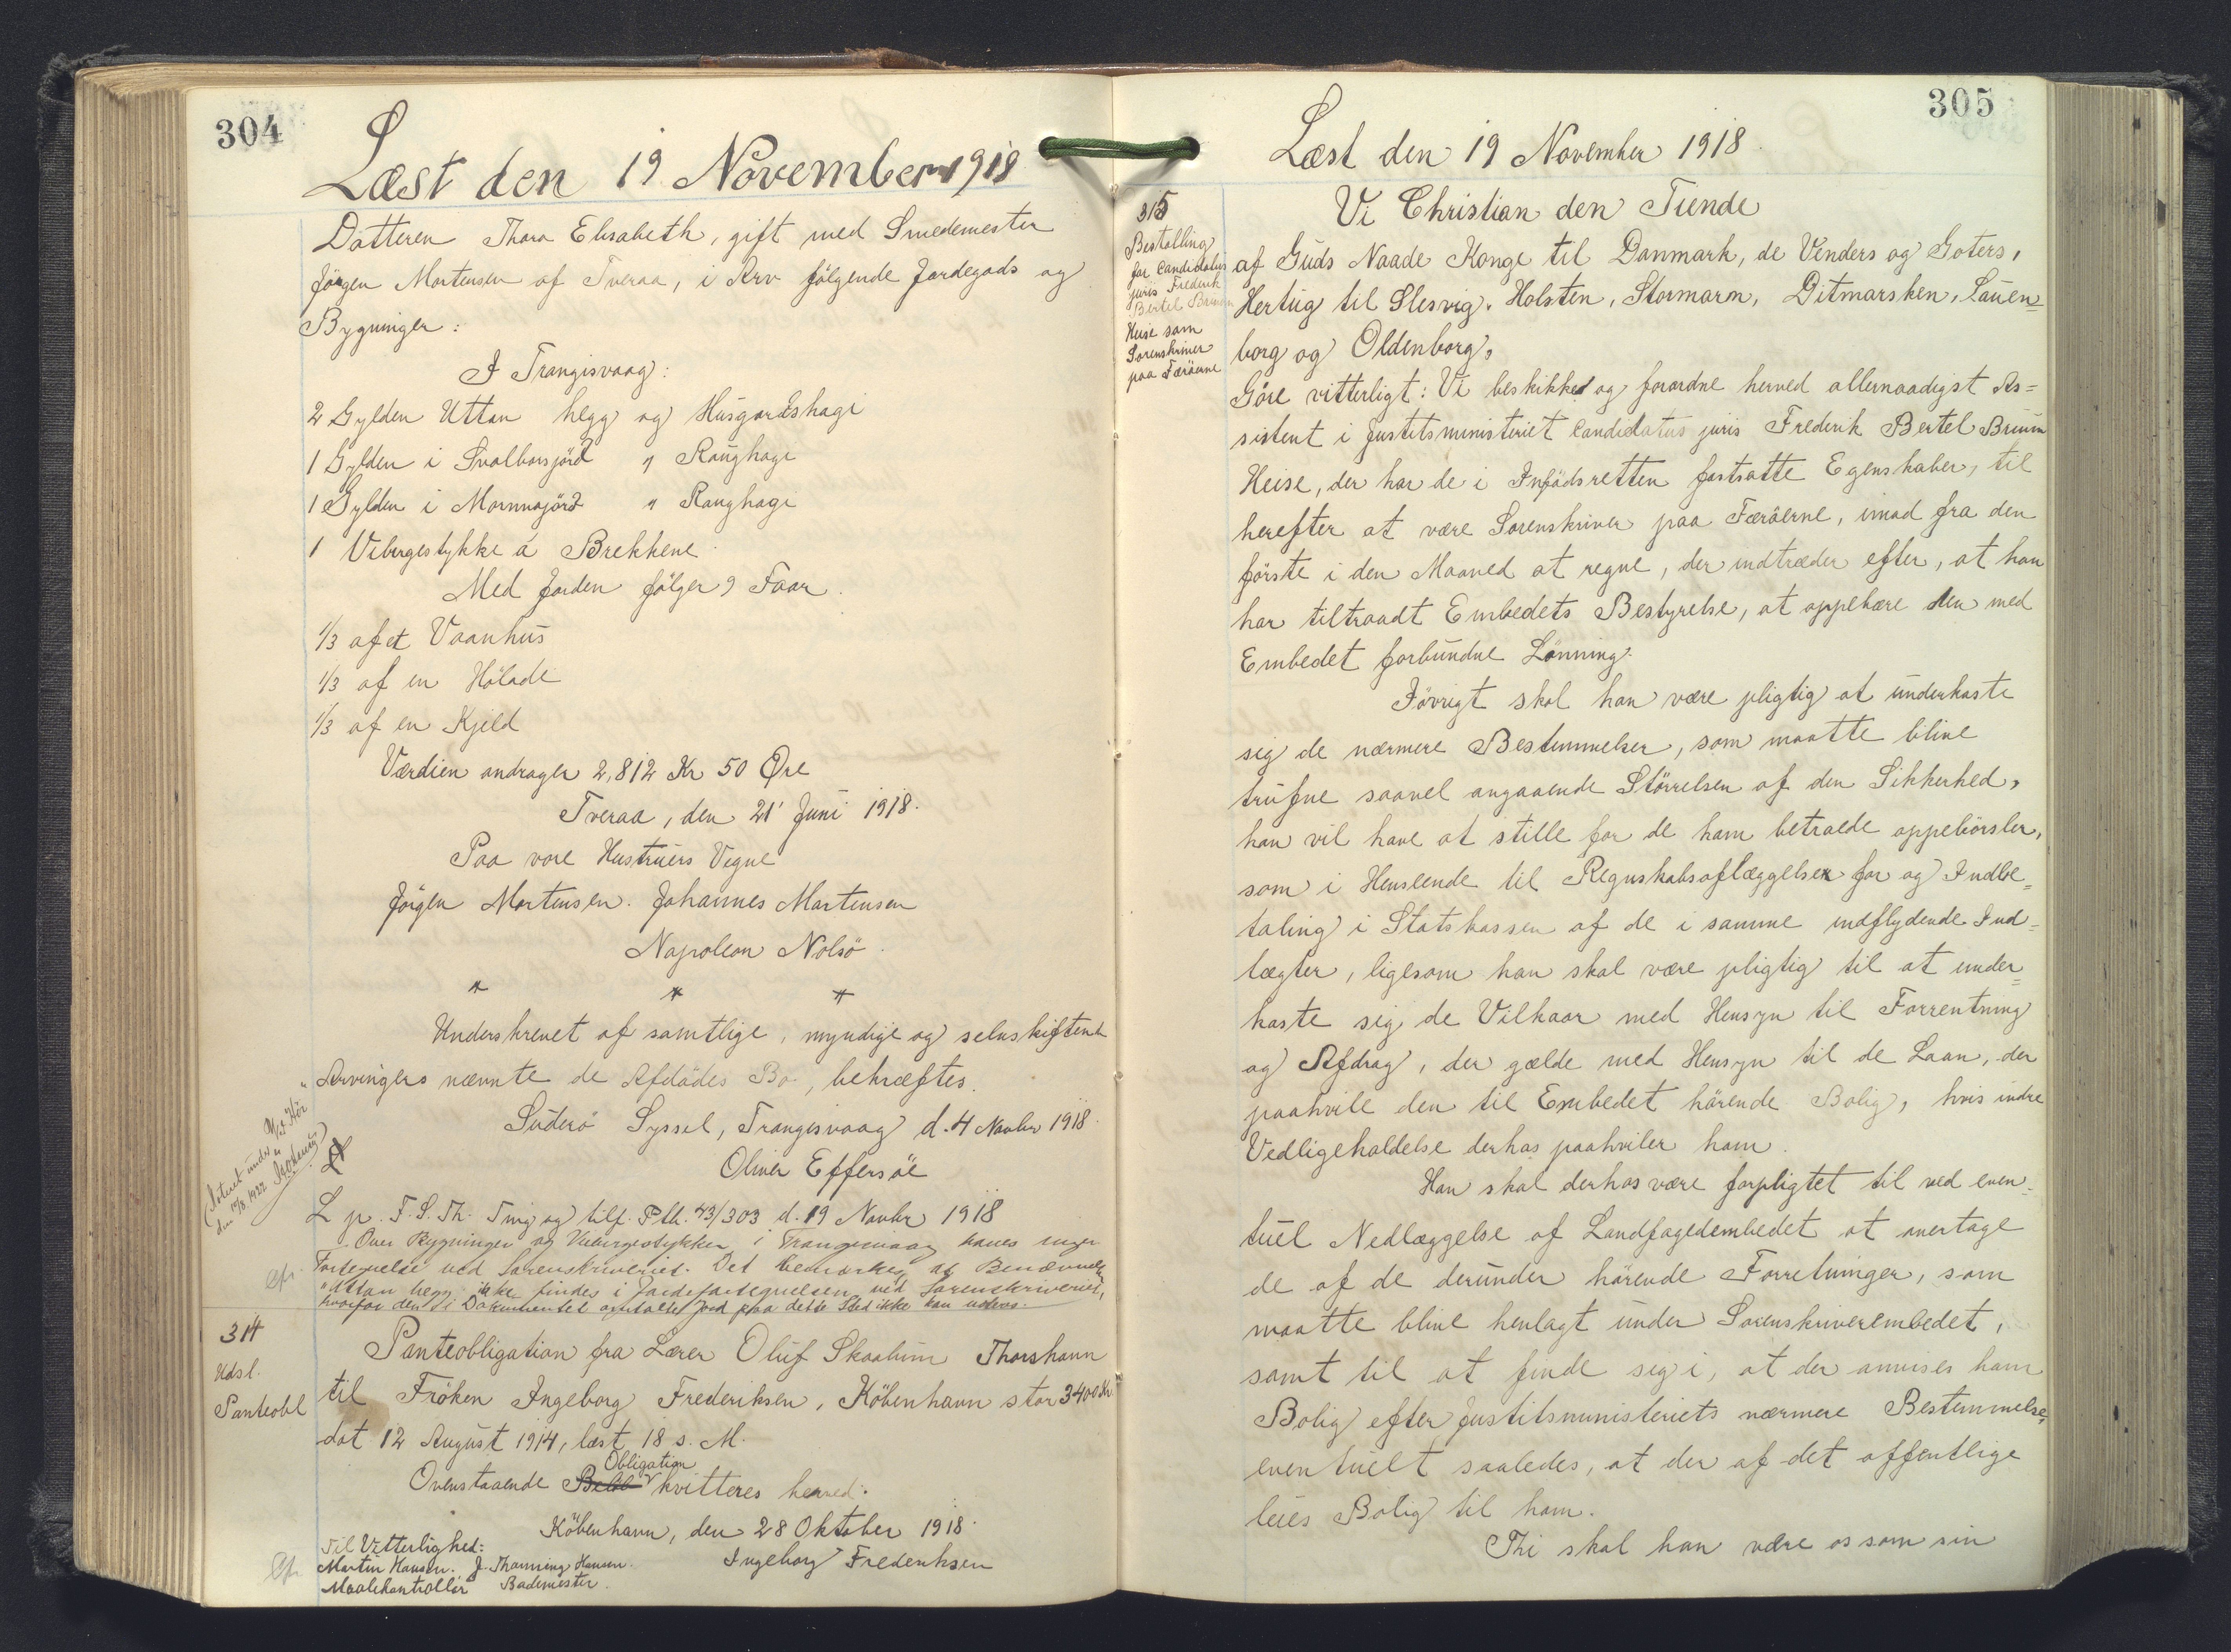 304
Læst den 19 November 1918
Datteren Thora Elisabeth, gift med Smedemester
Jørgen Mortensen af Tveraa, i Arv følgende Jordegods og
Bygninger:
I Trangisvaag:
2 Gylden Uttan hegg og Husgardshagi
1 Gylden i Svalbarsjörd " Raughagi
1 Gylden i Mornnajörd " Raughagi
1 Viburgestykke á Brekkene
Med Jorden følger 9 Faar.
1/3 af et Vaanhus
1/3 af en Hölade
1/3 af en Kjeld
Værdien andrager 2,812 Kr 50 Øre
Tveraa, den 21' Juni 1918.
Paa vore Hustruers Vegne
Jörgen Mortensen. Johannes Mortensen
Napoleon Nolsö.
* * *
Underskrevet af samtlige, myndige og selvskiftende
Arvinger nævnte de Afdödes Bo, bekræftes.
Suderö Syssel, Trangisvaag d. 4 Novbr 1918.
Oliver Effersöe
(Noteret under
den 17/8. 1922
L p. F. S. Th. Ting og tilf. Ptb. 43/303 d. 19 Novbr 1918
Over Bygninger og Viburgestykker i Trangisvaag haves ingen
Fortegnelse ved Sorenskriveriet. Det bemærkes at Benævnelse
"Uttan hegg" ikke findes i Jordefortegnelsen ved Sorenskriveriet,
hvorfor den i Dokumentet omtalte Jord paa dette Sted ikke kan
cfr.
314
Udsl.
Panteobl
Panteobligation fra Lærer Oluf Skaalum Thorshavn
til Fröken Ingeborg Frederiksen, Köbenhavn stor 3400 Kr
dat 12 August 1914, læst 18 s. M.
Obligation
Ovenstaaende kvitteres herved.
Köbenhavn, den 28 Oktober 1918.
Ingeborg Frederiksen
Til Vitterlighed:
Martin Hansen. J. Thanning Hansen.
Maalekontrollör Bademester.
Cfr.
305
Læst den 19 November 1918.
315
Bestalling
for Candidatus
juris Frederik
Bertel Bruun
Heise som
Sorenskriver
paa Færöerne
Vi Christian den Tiende
af Guds Naade Konge til Danmark, de Venders og Goters,
Hertug til Slesvig, Holsten, Stormarn, Ditmarsken, Lauen=
borg og Oldenborg,
Göre vitterligt: Vi beskikked og forordne herved allernaadigst As=
sistent i Justitsministeriet Candidatus juris Frederik Bertel Bruun
Heise, der har de i Infödsretten fastsatte Egenskaber, til
herefter at være Sorenskriver paa Færöerne, imod fra den
förste i den Maaned at regne, der indtræder efter, at han
har tiltraadt Embedets Bestyrelse, at oppebære den med
Embedet forbundne Lönning.
Iövrigt skal han være pligtig at underkaste
sig de nærmere Bestemmelser, som maatte blive
trufne saavel angaaende Störrelsen af den Sikkerhed,
han vil have at stille for de ham betroede oppebörsler,
som i Henseende til Regnskabsaflæggelsen for og Indbe=
taling i Statskassen af de i samme indflydende Ind=
tægter, ligesom han skal være pligtig til at under=
kaste sig de Vilkaar med Hensyn til Forrentning
og Afdrag, der gælde med Hensyn til de Laan, der
paahvile den til Embedet hörende Bolig, hvis indre
Vedligeholdelse derhos paahviler ham.
Han skal derhos være forpligtet til ved even=
tuel Nedlæggelse af Landfogedembedet at overtage
de af de derunder hörende Forretninger, som
maatte blive henlagt under Sorenskriverembedet,
samt til at finde sig i, at der anvises ham
Bolig efter Justitsministeriets nærmere Bestemmelse,
eventuelt saaledes, at der af det offentlige
leies Bolig til ham.
Thi skal han være os som sin